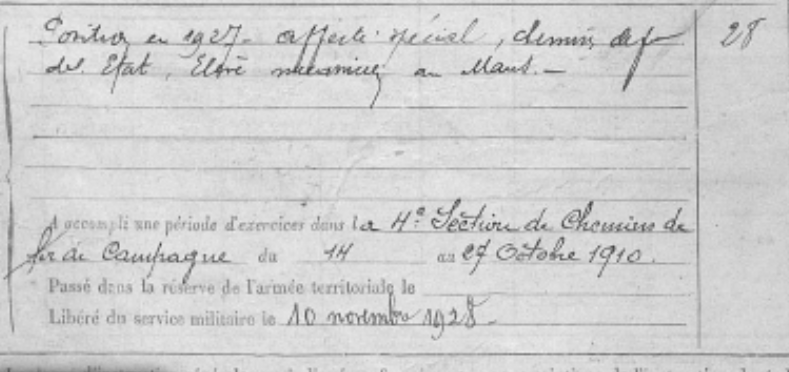 Position en 1927. affecté spécial, chemins de fer 28
de l'Etat, Elève mécanicien au Mans. —
A accompli une période d'exercices dans la 4e Section de Chemins de
fer de Campagne du 14 au 27 Octobre 1910.
Passé dans la réserve de l'armée territoriale le
Libéré du service militaire le 10 novembre 1928 -